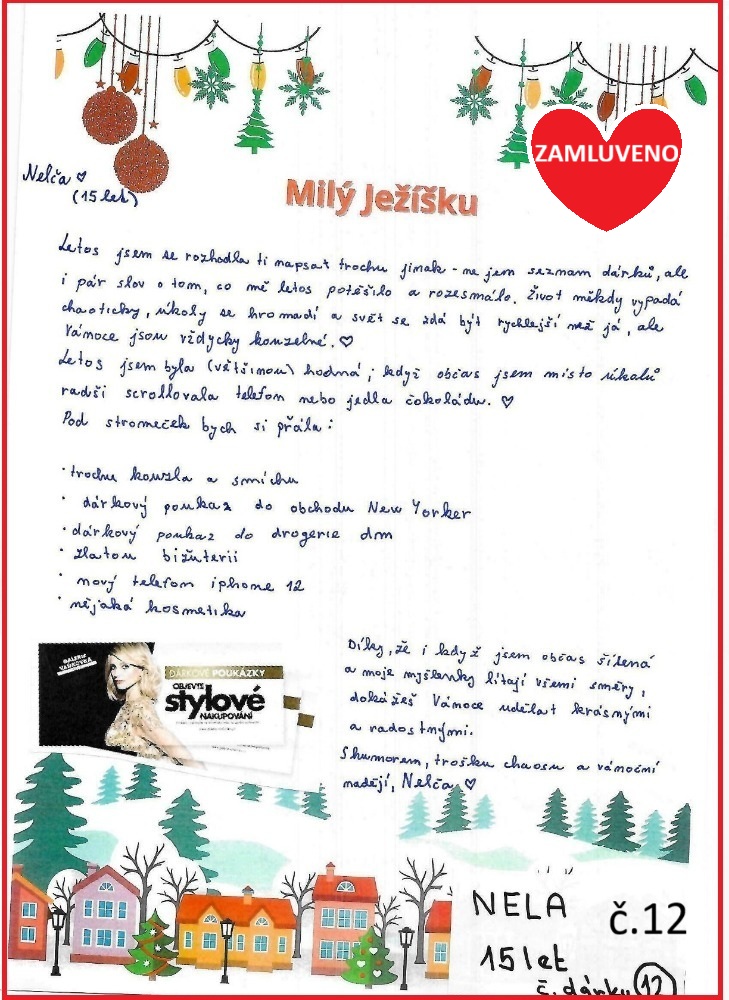 ZAMLUVENO
Nelča ♡
(15 let)
Milý Ježíšku
Letos jsem se rozhodla ti napsat trochu jinak - ne jen seznam dárků, ale
i pár slov o tom, co mě letos potěšilo a rozesmálo. Život někdy vypadá
chaoticky, úkoly se hromadí a svět se zdá být rychlejší než já, ale
Vánoce jsou vždycky kouzelné. ♡
Letos jsem byla (většinou) hodná, i když občas jsem místo úkolů
radši scrollovala telefon nebo jedla čokoládu. ♡
Pod stromeček bych si přála:
· trochu kouzla a smíchu
· dárkový poukaz do obchodu New Yorker
· dárkový poukaz do drogerie dm
· zlatou bižuterii
· nový telefon iphone 12
· nějaká kosmetika
GALERIE
VAŇKOVKA
DÁRKOVÉ POUKÁZKY
OBJEVTE
stylové
NAKUPOVÁNÍ
Díky, že i když jsem občas šílená
a moje myšlenky lítají všemi směry,
dokážeš Vánoce udělat krásnými
a radostnými.
S humorem, trošku chaosu a vánoční
nadějí, Nelča ♡
NELA
č.12
15 let
č. dárku 12